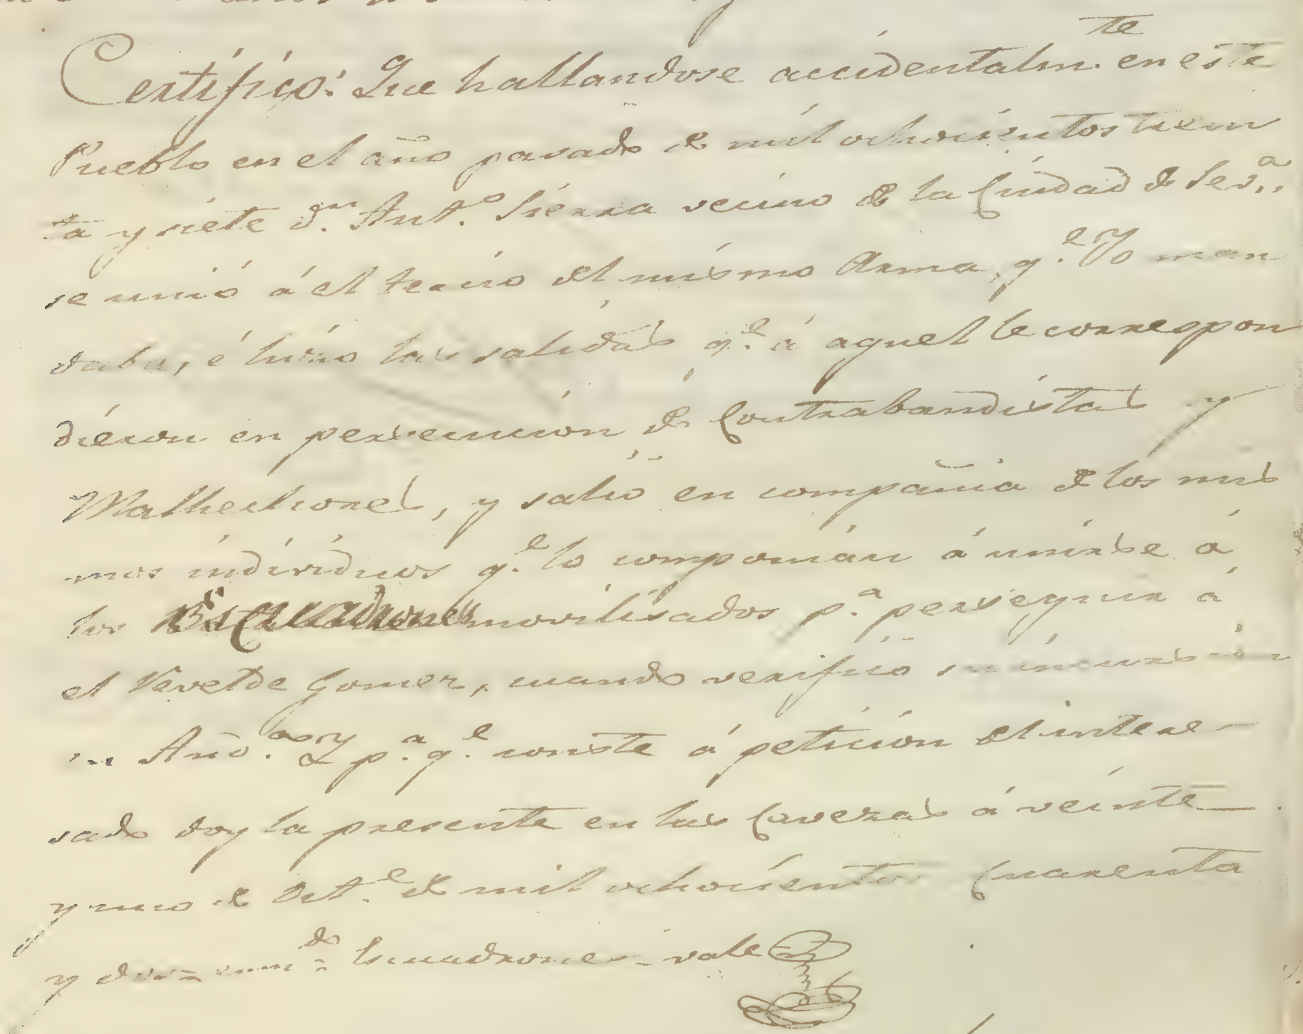 Certifico: Que hallandose accidentalm.te en este
Pueblo en el año pasado de mil ochocientos trein
ta y siete d.n Ant.o Sierra vecino de la Ciudad de Sev.a
se unió á el tercio del mismo Arma, q.e Yo man
daba, é hizo las salidas q.e á aquel le correspon
dieron en persecucion de Contrabandistas y
Malhechores, y salio en compañia de los mis
mos individuos q.e lo componian á unirse á
los Escuadrones movilisados p.a perseguir á
el Revelde Gomez, cuando verifico su incursion
en And.a Y p.a q.e conste á peticion del intere-
sado doy la presente en las Cavezas á veinte
y uno de Oct.e de mil ochocientos Cuarenta
y dos = enm.do = Escuadrones = vale